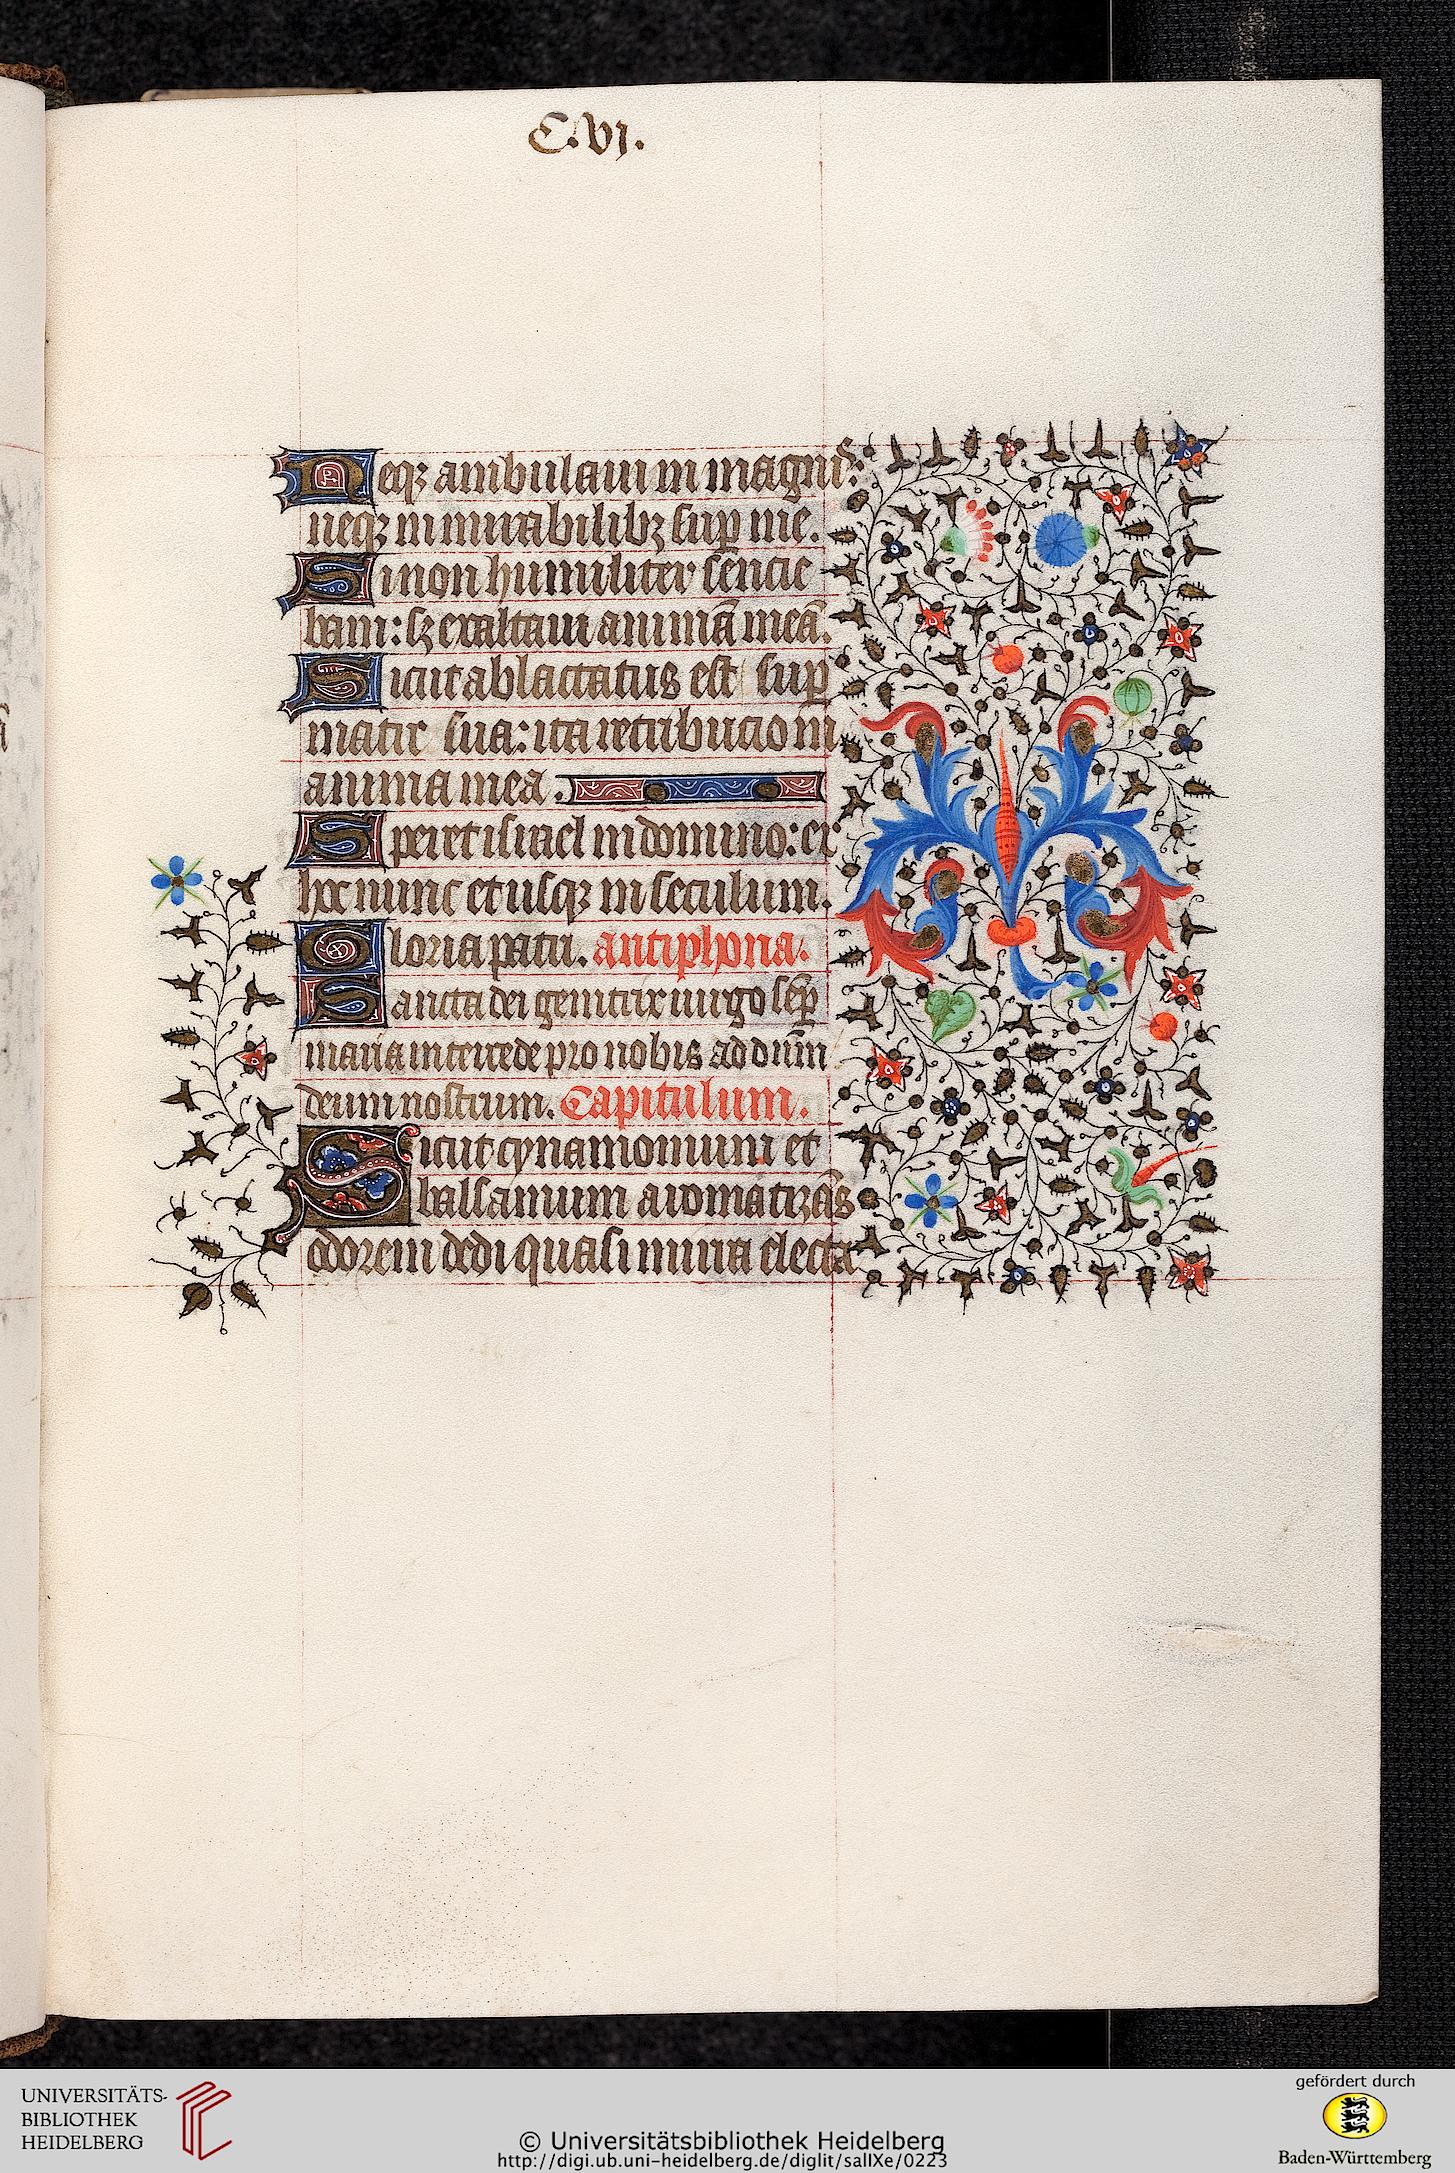 C.vi.
Neqꝫ ambulaui in magnis:
neqꝫ in mirabilibꝫ sup̄ me.
Si non humiliter sencie
bam: sꝫ exaltaui animā meā.
Sicut ablactatus est sup̄
matre sua: ita retribucio in
anima mea.
Speret israel in domino: ex
hoc nunc et usqꝫ in seculum.
Gloria patri. antiphona.
Sancta dei genitrix uirgo sēp̄
maria intercede pro nobis ad dn̄m
deum nostrum. Capitulum.
Sicut cynamomum et
balsamum aromatizās
odorem dedi quasi mirra electa
UNIVERSITÄTS-
BIBLIOTHEK
HEIDELBERG
© Universitätsbibliothek Heidelberg
http://digi.ub.uni-heidelberg.de/diglit/salIXe/0223
gefördert durch
Baden-Württemberg